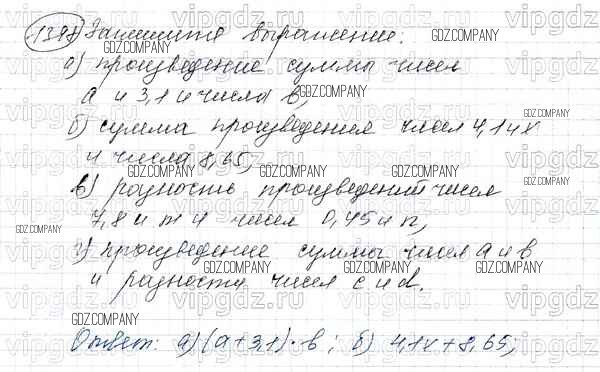 1388 Запишите выражение.
а) произведение суммы чисел
а и 3,1 и числа b,
б) сумма произведения чисел 4,1 и x
и числа 8,65,
в) разность произведений чисел
7,8 и m и чисел 0,45 и n,
г) произведение суммы чисел а и b
и разности чисел c и d.
Ответ: а) (a+3,1)·b; б) 4,1x+8,65;